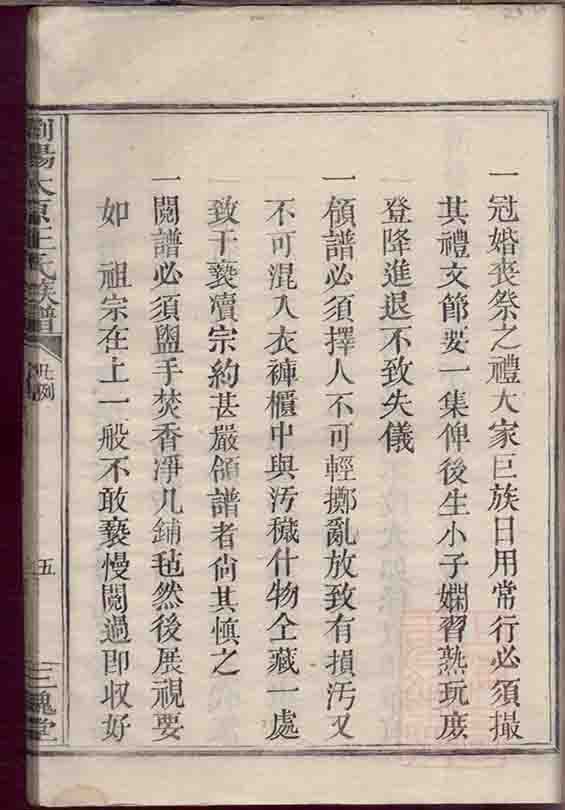 一冠婚喪祭之禮大家巨族日用常行必須撮
其禮文節要一集俾後生小子嫻習熟玩庻
登降進退不致失儀
一領譜必須擇人不可輕擲亂放致有損汚又
不可混入衣褲櫃中與汚穢什物仝藏一處
致干褻瀆宗約甚嚴領譜者尙其慎之
一閱譜必須盥手焚香凈几鋪毡然後展視要
如 祖宗在上一般不敢褻慢閱過即收好
瀏陽太原王氏族譜
凡例
五
三槐堂